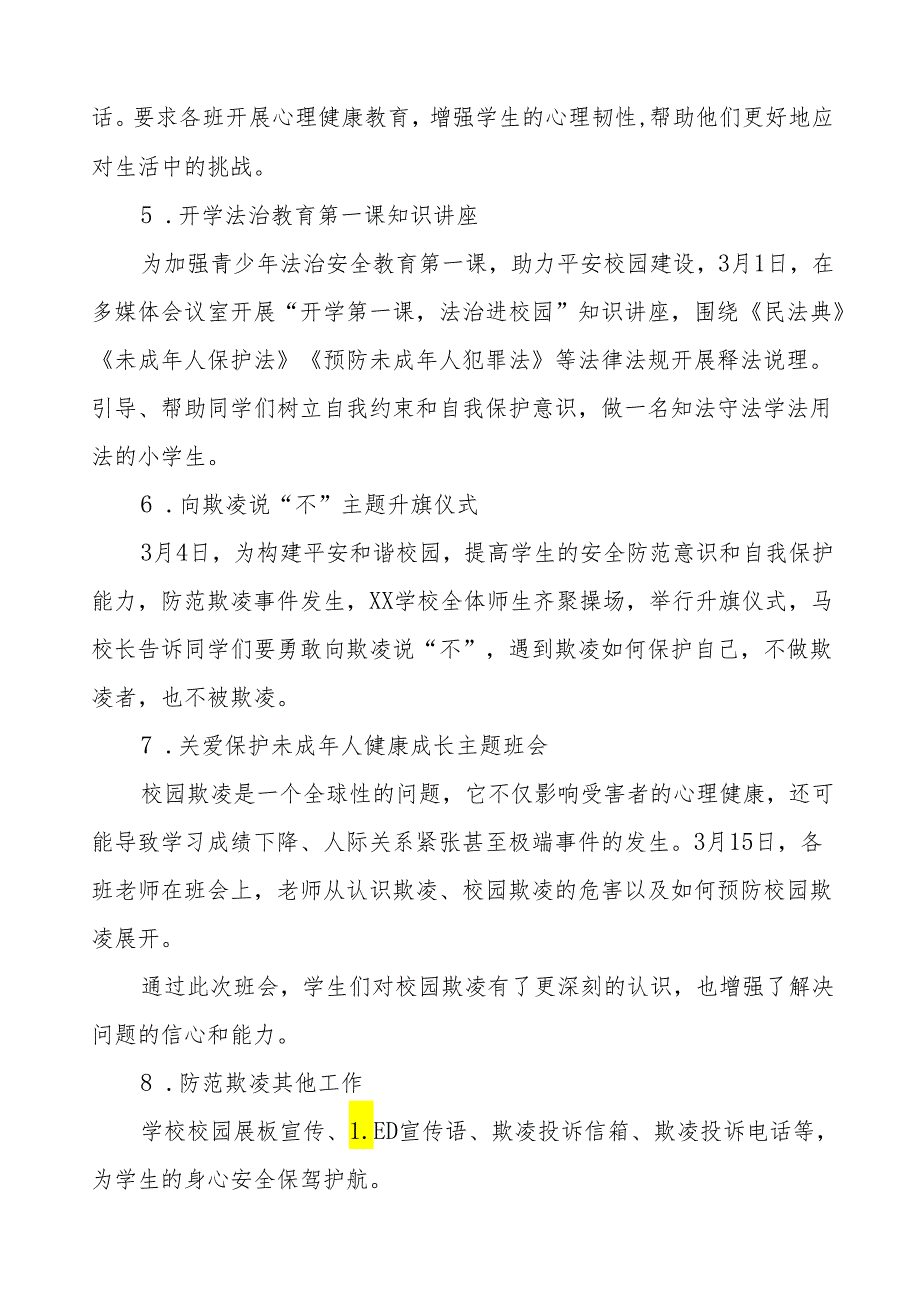 话。要求各班开展心理健康教育，增强学生的心理韧性,帮助他们更好地应
对生活中的挑战。
5 .开学法治教育第一课知识讲座
为加强青少年法治安全教育第一课，助力平安校园建设，3月1日，在
多媒体会议室开展“开学第一课，法治进校园”知识讲座，围绕《民法典》
《未成年人保护法》《预防未成年人犯罪法》等法律法规开展释法说理。
引导、帮助同学们树立自我约束和自我保护意识，做一名知法守法学法用
法的小学生。
6 .向欺凌说“不”主题升旗仪式
3月4日，为构建平安和谐校园，提高学生的安全防范意识和自我保护
能力，防范欺凌事件发生，XX学校全体师生齐聚操场，举行升旗仪式，马
校长告诉同学们要勇敢向欺凌说“不”，遇到欺凌如何保护自己，不做欺
凌者，也不被欺凌。
7 .关爱保护未成年人健康成长主题班会
校园欺凌是一个全球性的问题，它不仅影响受害者的心理健康，还可
能导致学习成绩下降、人际关系紧张甚至极端事件的发生。3月15日，各
班老师在班会上，老师从认识欺凌、校园欺凌的危害以及如何预防校园欺
凌展开。
通过此次班会，学生们对校园欺凌有了更深刻的认识，也增强了解决
问题的信心和能力。
8 .防范欺凌其他工作
学校校园展板宣传、1.ED宣传语、欺凌投诉信箱、欺凌投诉电话等，
为学生的身心安全保驾护航。